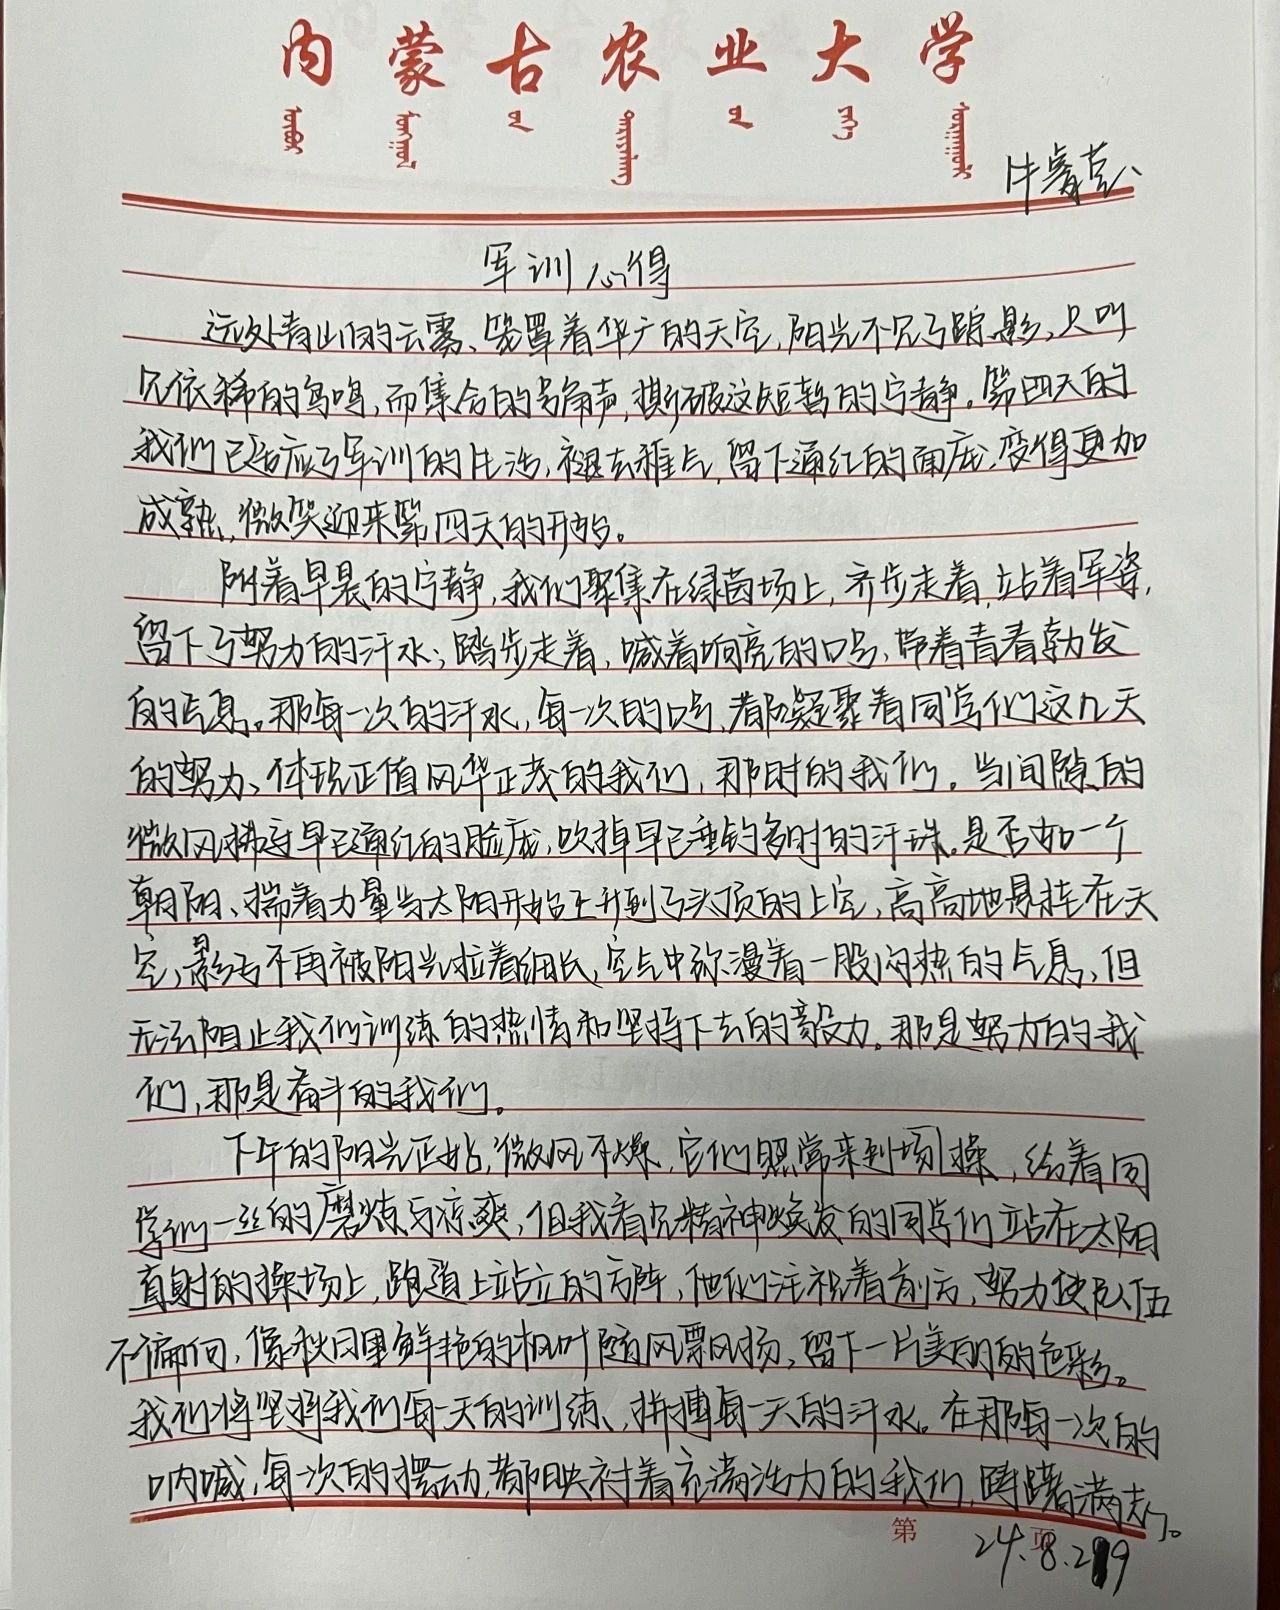 内蒙古农业大学
牛睿
军训心得
远处青山的云雾、笼罩着华广的天空,阳光不见了踪影,只叫
见依稀的鸟鸣,而集合的号角声,撕破这短暂的宁静。第四天的
我们已适应了军训的生活,褪去稚气,留下通红的面庞,变得更加
成熟,微笑迎来第四天的开始。
附着早晨的宁静,我们聚集在绿茵场上,齐步走着,站着军姿,
留下了努力的汗水;踏步走着,喊着响亮的口号,带着青春勃发
的气息。那每一次的汗水,每一次的口号,都凝聚着同学们这几天
的努力、体现正值风华正茂的我们,那时的我们。当间隙的
微风拂过早已通红的脸庞,吹掉早已垂钓多时的汗珠。是否如一个
朝阳、揣着力量当太阳开始上升到了头顶的上空,高高地悬挂在天
空,影子不再被阳光拉着细长,空气中弥漫着一股闷热的气息,但
无法阻止我们训练的热情和坚持下去的毅力。那是努力的我
们,那是奋斗的我们。
下午的阳光正好,微风不燥,它们照常来到场操,给着同
学们一丝的磨炼与凉爽,但我看见精神焕发的同学们站在太阳
直射的操场上,跑道上站立的方阵,他们注视着前方,努力使队伍
不偏向,像秋日里鲜艳的枫叶随风飘扬,留下一片美丽的色彩。
我们将坚持我们每一天的训练、拼搏每一天的汗水。在那每一次的
呐喊,每一次的摆动,都映衬着充满活力的我们,踌躇满志。
第 页
24.8.29